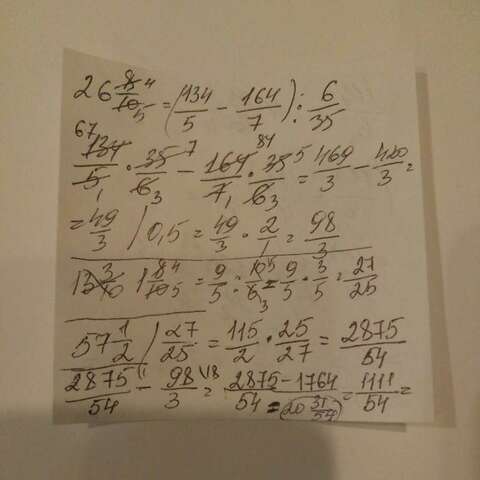 26 8/10 4/5 = (134/5 - 164/7) : 6/35
67 134/5 1 · 35 7/6 3 - 164 84/7 1 · 35 5/6 3 = 469/3 - 420/3 =
= 49/3 / 0,5 = 49/3 · 2/1 = 98/3
1 8/10 4/5 = 9/5 : 10 5/6 3 = 9/5 · 3/5 = 27/25
57 1/2 / 27/25 = 115/2 · 25/27 = 2875/54
2875/54 \1 - 98/3 \18 = 2875-1764/54 = 1111/54 =
= 20 31/54